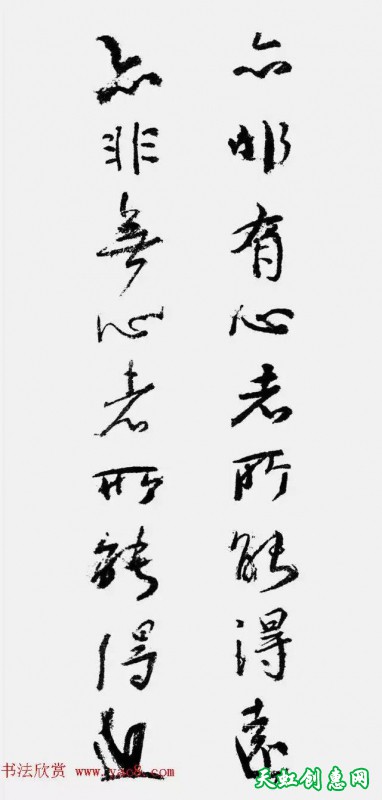 亦非有心者所能得遠
亦非無心者所能得近
书法欣赏
天虹创惠网